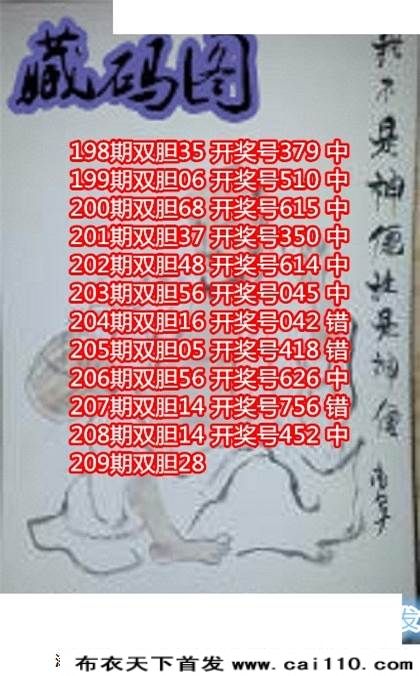 藏码图
198期双胆35 开奖号379 中
199期双胆06 开奖号510 中
200期双胆68 开奖号615 中
201期双胆37 开奖号350 中
202期双胆48 开奖号614 中
203期双胆56 开奖号045 中
204期双胆16 开奖号042 错
205期双胆05 开奖号418 错
206期双胆56 开奖号626 中
207期双胆14 开奖号756 错
208期双胆14 开奖号452 中
209期双胆28
不是神仙 是神仙
发
布衣天下首发 www.cai110.com